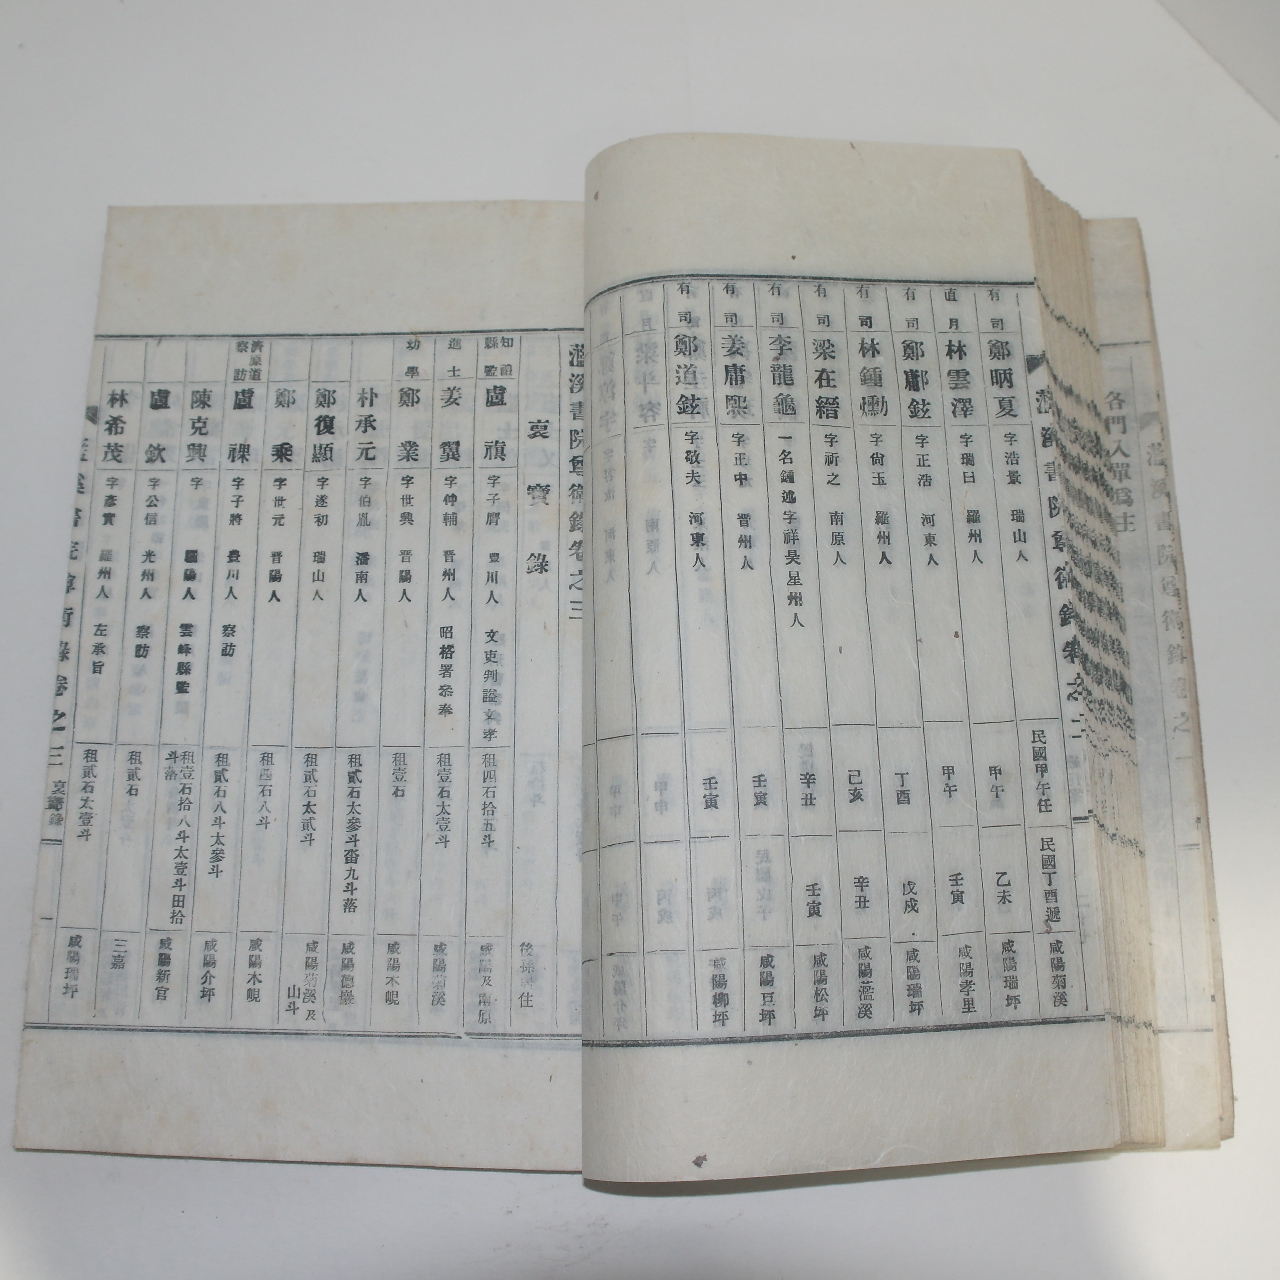 有司 鄭昞夏 字浩景 瑞山人 民國甲午任 民國丁酉遞 咸陽菊溪
直月 林雲澤 字瑞日 羅州人 甲午 乙未 咸陽瑞坪
有司 鄭鄘鉉 字正浩 河東人 甲午 壬寅 咸陽孝里
有司 林鍾勳 字尙玉 羅州人 丁酉 戊戌 咸陽瑞坪
有司 梁在縉 字祈之 南原人 己亥 辛丑 咸陽藍溪
有司 李龍龜 一名鍾遞字祥昊星州人 辛丑 壬寅 咸陽松坪
有司 姜庸熙 字正中 晋州人 壬寅 咸陽豆坪
有司 鄭道鉉 字敬夫 河東人 壬寅 咸陽柳坪
書院尊衛錄卷之二
溪書院尊衛錄卷之三
裒寶錄 後孫 住
知縣監 盧禛 字子膺 豊川人 文吏判謚文孝 租四石拾五斗 咸陽及南原
進士 姜翼 字仲輔 晋州人 昭格署叅奉 租壹石太壹斗 咸陽菊溪
幼學 鄭業 字世興 晋陽人 租壹石 咸陽木峴
朴承元 字伯胤 潘南人 租貳石太參斗畓九斗落 咸陽德巖
鄭復顯 字遂初 瑞山人 租貳石太貳斗 咸陽菊溪及山斗
鄭乘 字世元 晋陽人 租四石八斗
濟原道察訪 盧祼 字子將 豊川人 察訪 租貳石八斗太參斗 咸陽木峴
陳克興 字 驪陽人 雲峰縣監 租壹石拾八斗太壹斗田拾斗落 咸陽介坪
盧欽 字公信 光州人 察訪 租貳石 咸陽新官
林希茂 字彥實 羅州人 左承旨 租貳石太壹斗 三嘉
咸陽瑞坪
書院尊衛錄卷之三 裒寶錄 一
各門入單爲主